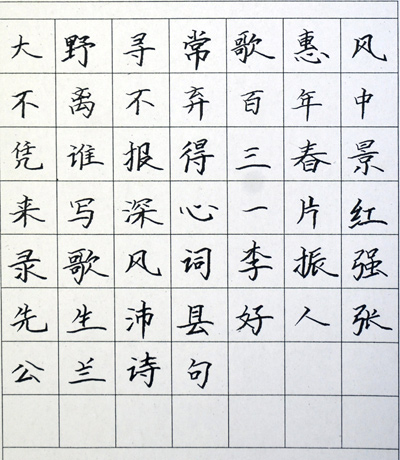 大野寻常歌惠风
不离不弃百年中
凭谁报得三春景
来写深心一片红
录歌风词李振强
先生沛县好人张
公兰诗句